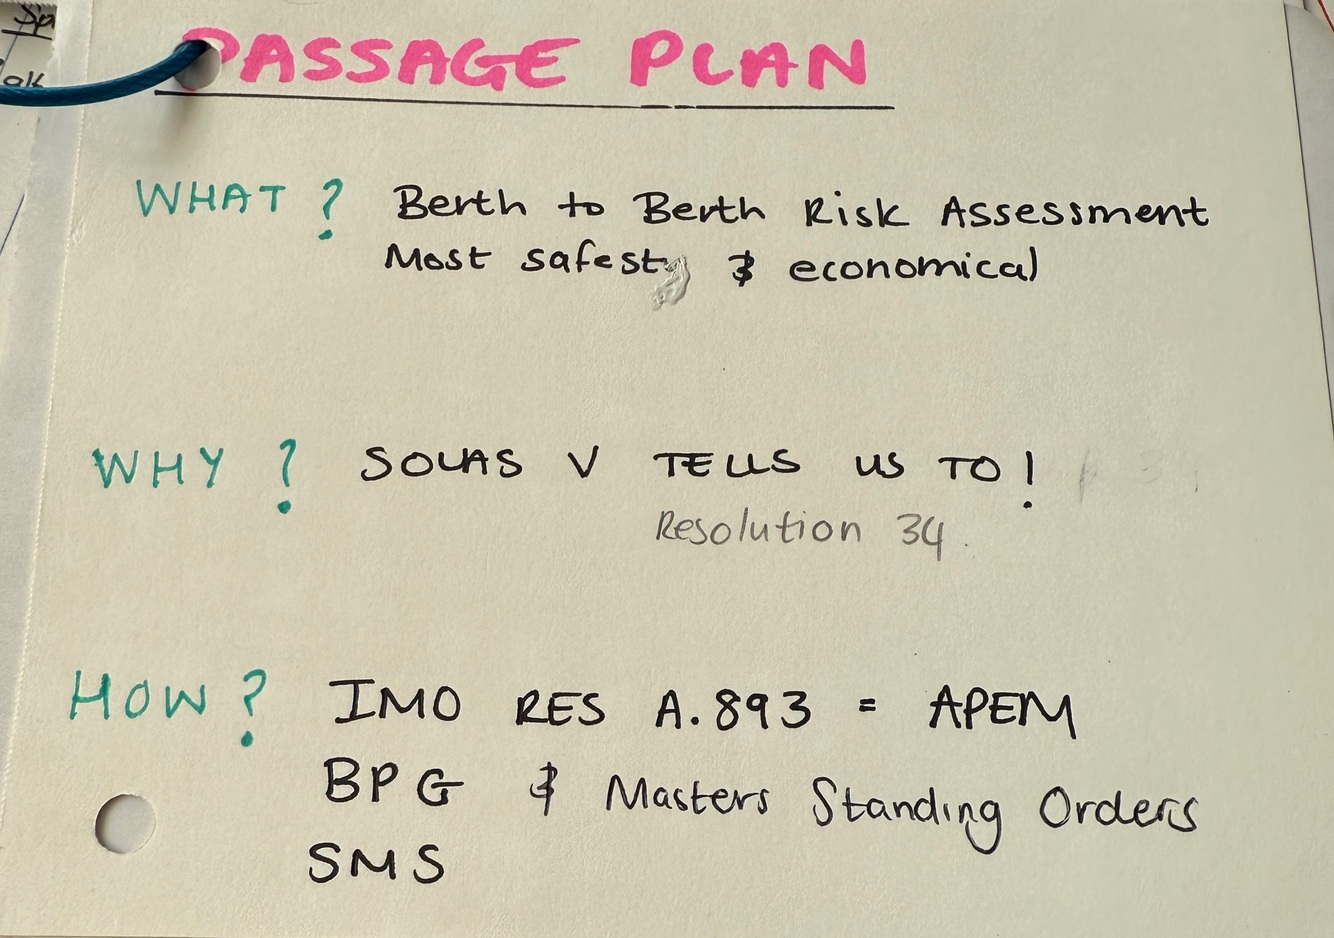 PASSAGE PLAN
WHAT? Berth to Berth Risk Assessment
Most safest & economical
WHY? SOLAS V TELLS US TO!
Resolution 34
HOW? IMO RES A.893 = APEM
BPG & Masters Standing Orders
SMS